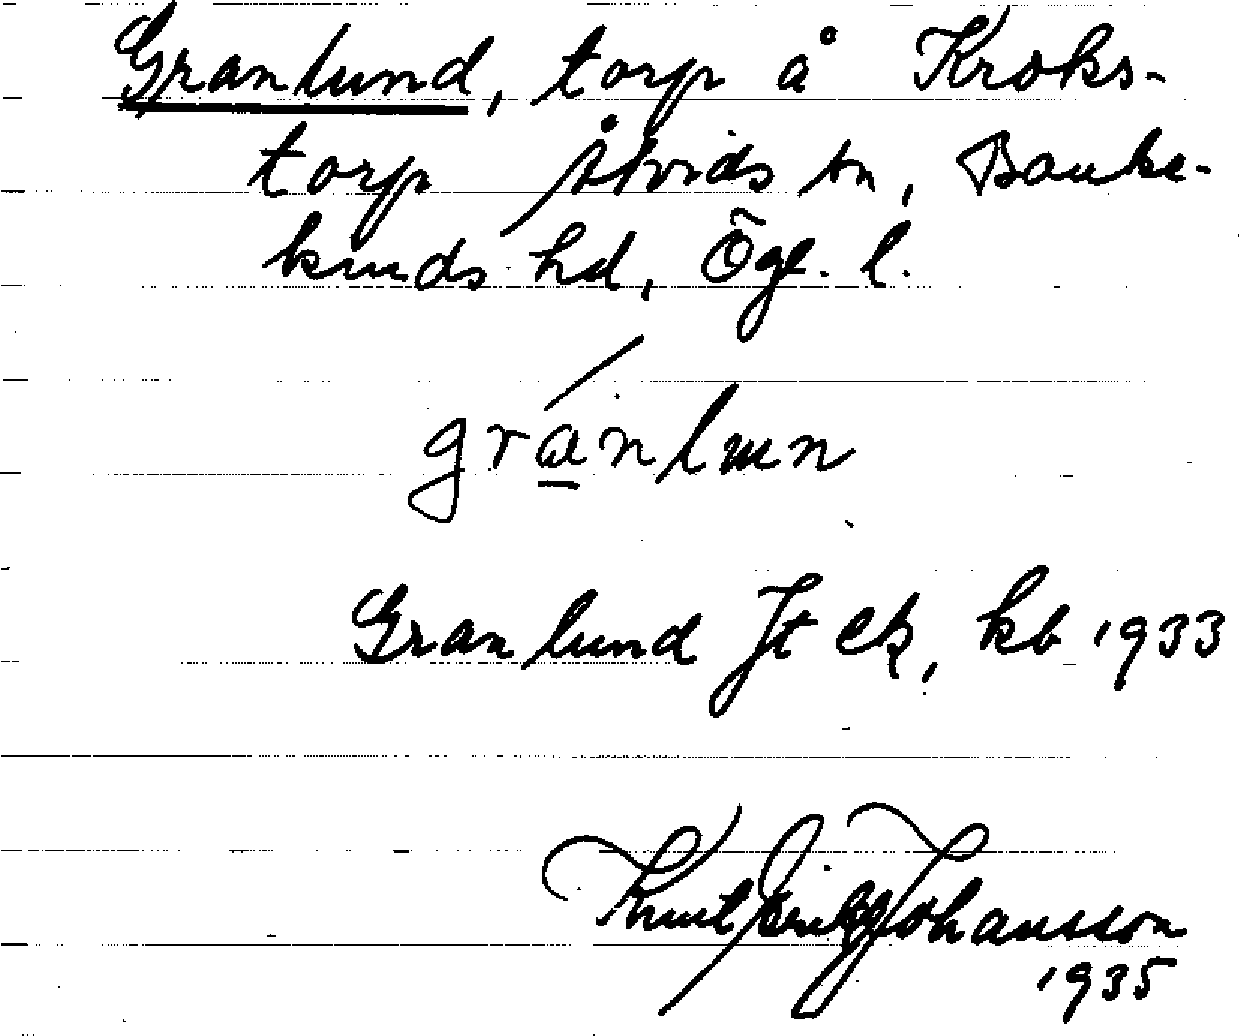 Granlund, torp å Kroks-
torp Åtvids sn, Banke-
kinds hd, Ögl. l.
granlun
Granlund Jt ek, kb 1933
Knut Erik Johansson
1935